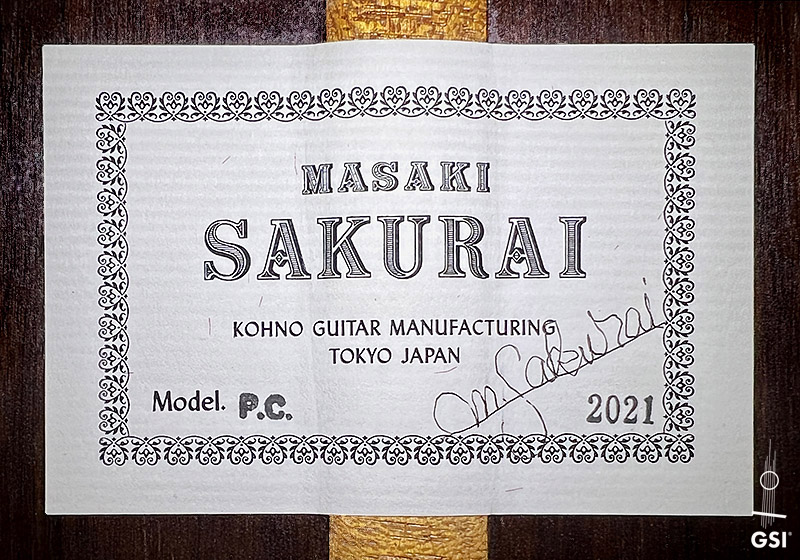 MASAKI
SAKURAI
KOHNO GUITAR MANUFACTURING
TOKYO JAPAN
M. Sakurai
Model. P.C. 2021
GSI®